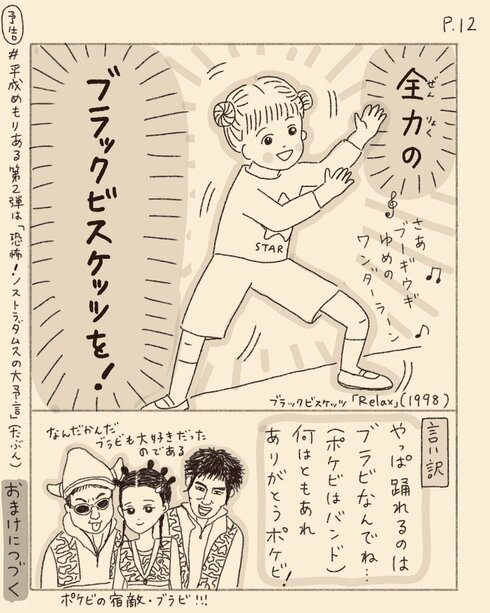 P.12
全力の
ぜん
りょく
ブラックビスケッツを!
さあ
ブーギウギ
ゆめの
ワンダーラーン
STAR
ブラックビスケッツ「Relax」(1998)
言い訳
やっぱ踊れるのは
ブラビなんでね…
(ポケビはバンド)
何はともあれ
ありがとうポケビ!
なんだかんだ
ブラビも大好きだった
のである
ポケビの宿敵・ブラビ!!!
予告
#平成めもりある 第2弾は「恐怖!ノストラダムスの大予言」(たぶん)
おまけにつづく